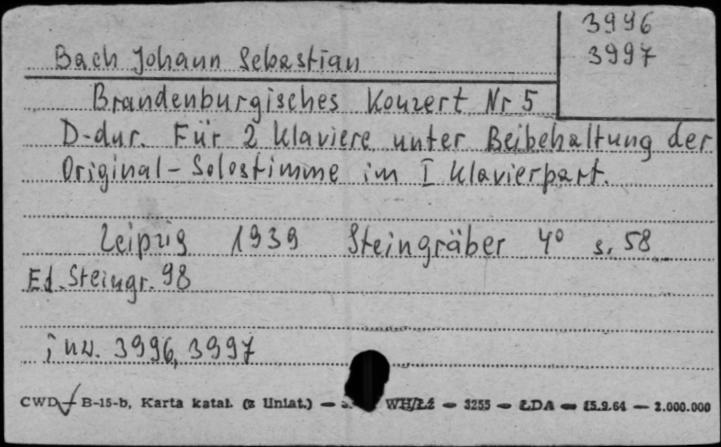 3996
3997
Bach Johann Sebastian
Brandenburgisches Konzert Nr 5
D-dur. Für 2 Klaviere unter Beibehaltung der
Original-Solostimme im I Klavierpart.
Leipzig 1939 Steingräber 4° s. 58
Ed. Steingr. 98
inw. 3996, 3997
CWD B-15-b, Karta katal. (z Uniat.) — WH/Łż — 3255 — ŁDA — 15.9.64 — 2.000.000